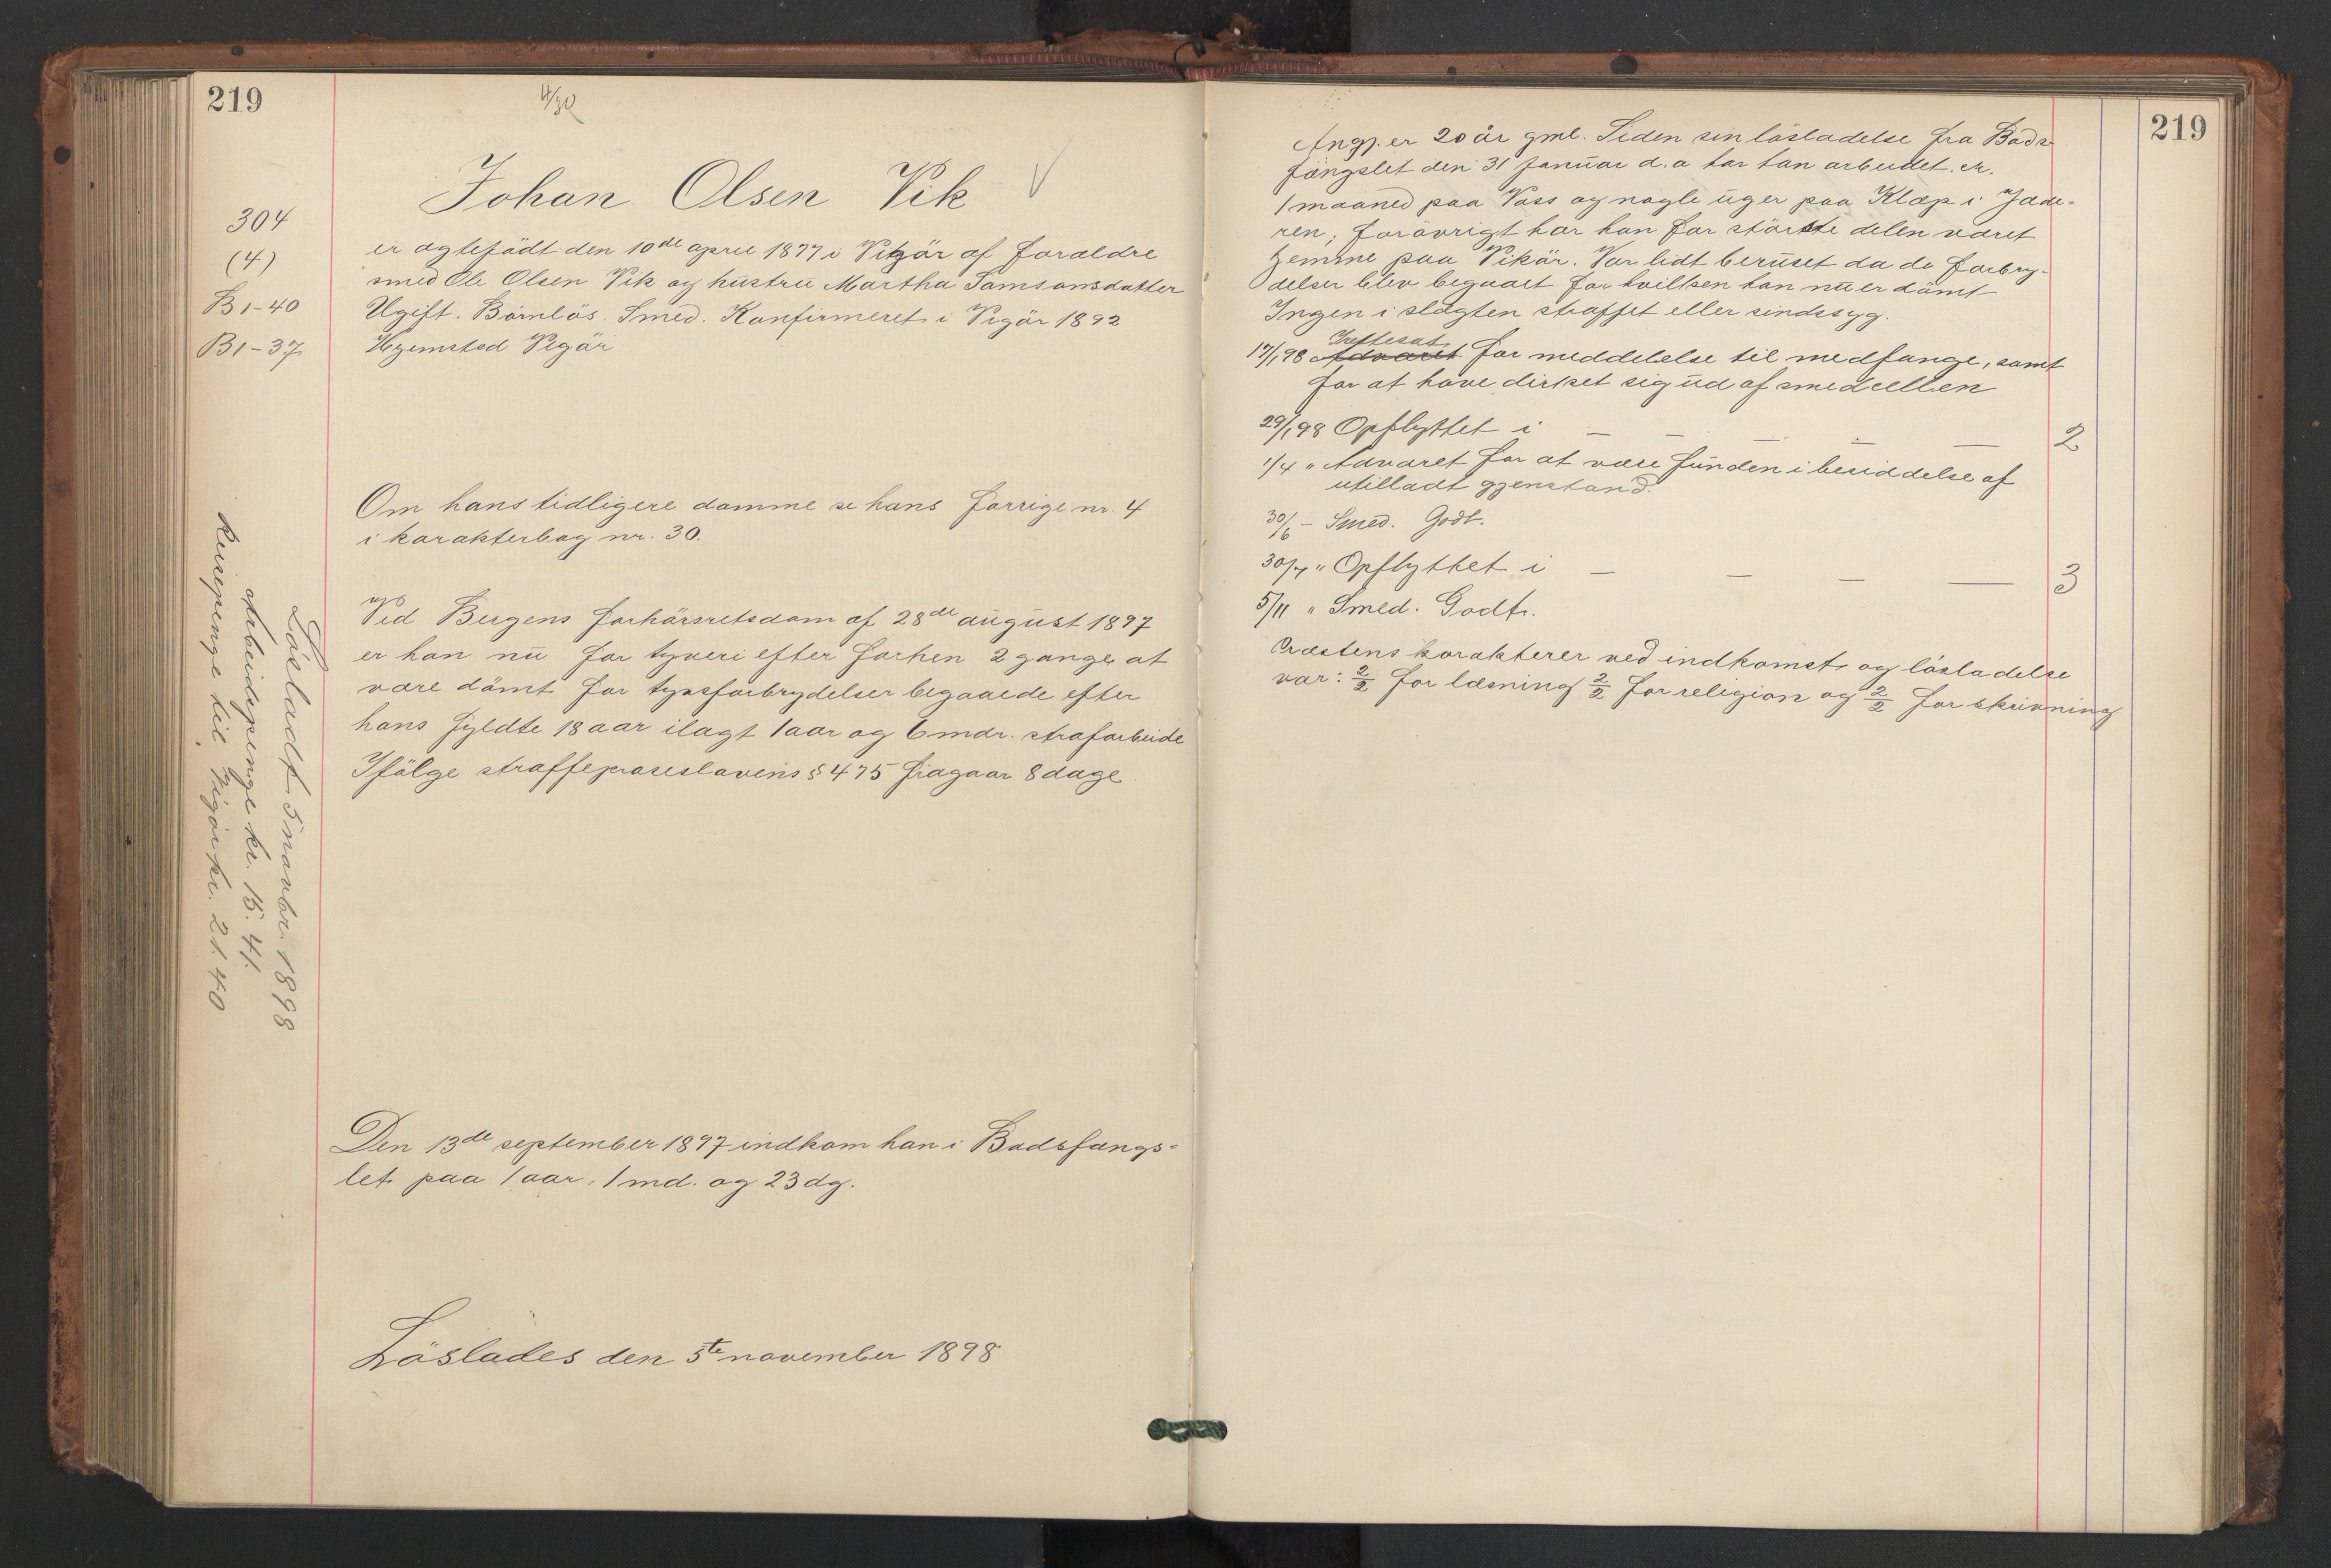 219
4/30
Johan Olsen Vik
304
(4)
B1-40
B1-37
er ægtefödt den 10de april 1877 i Vigör af forældre
smed Ole Olsen Vik og hustru Martha Samsonsdatter
Ugift. Barnlös. Smed. Konfirmeret i Vigör 1892
Hjemsted Vigör
Om hans tidligere domme se hans forrige nr. 4
i karakterbog nr. 30.
Ved Bergens forhörsretsdom af 28de august 1897
er han nu for tyveri efter forhen 2 gange at
være dömt for tyvsforbrydelser begaaede efter
hans fyldte 18 aar ilagt 1 aar og 6 mdr. strafarbeide
Ifölge straffeproseslovens § 475 fragaar 8 dage.
Den 13de september 1897 indkom han i Bodsfængs-
let paa 1 aar, 1 md. og 23 dg.
Löslades den 5te november 1898
Lösladt 5 novbr. 1898
Arbeidspenge kr. 15.41.
Reisepenge til Vigör kr. 21.40
219
Angj. er 20 år gml. Siden sin lösladelse fra Bods-
fängslet den 31 Januar d.a har han arbeidet
1 maaned paa Voss og nogle uger paa Klæp i Jæde-
ren; forövrigt har han for störste delen været
hjemme paa Vikör. Var lidt beruset da de forbry-
delser blev begaaet for hvilken han nu er dömt
Ingen i slægten straffet eller sindssyg.
Irettesat
17/1 98 Advaret for meddelelse til medfange, samt
for at have dirket sig ud af smedcellen
29/1 98 Opflyttet i — — — — — 2
1/4 " Advaret for at være funden i besiddelse af
utilladt gjenstand.
30/6 – Smed. Godt.
30/7 " Opflyttet i — — — — 3
5/11 " Smed. Godt.
Præstens karakterer ved indkomst og lösladelse
var: 2/2 for læsning 2/2 for religion og 2/2 for skrivning